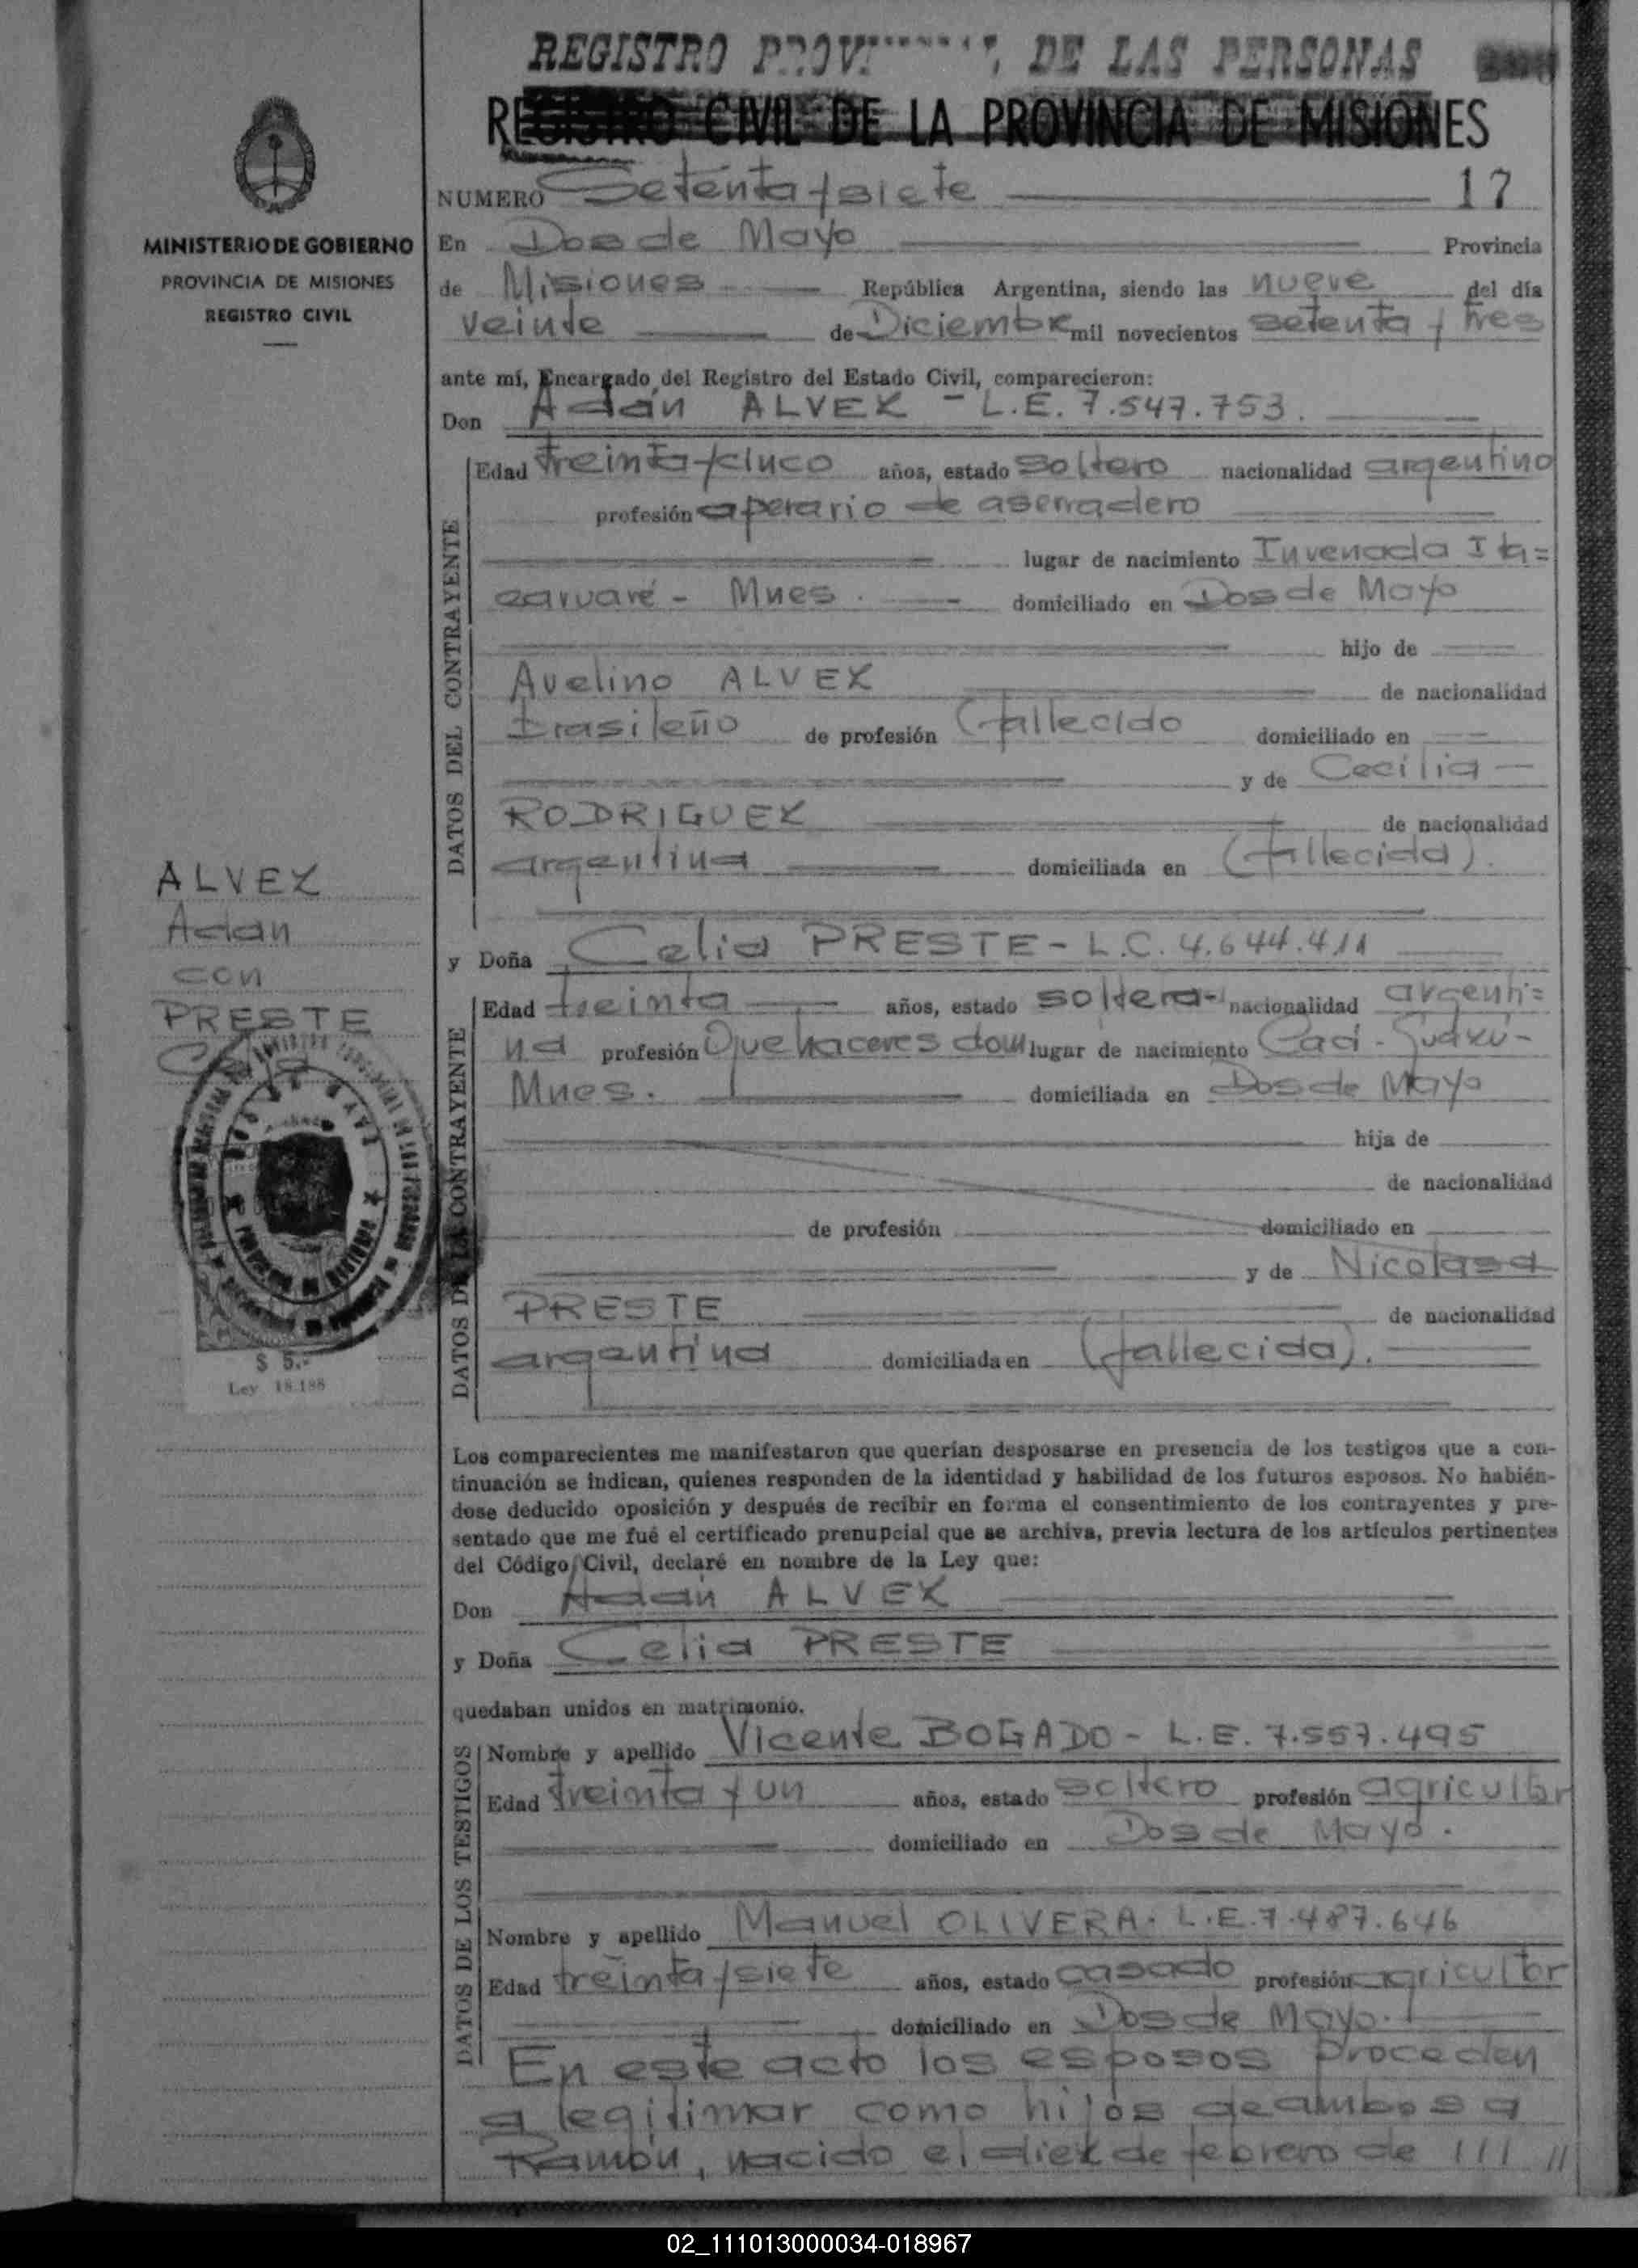 REGISTRO PROVINCIAL DE LAS PERSONAS
REGISTRO CIVIL DE LA PROVINCIA DE MISIONES
MINISTERIO DE GOBIERNO
PROVINCIA DE MISIONES
REGISTRO CIVIL
NUMERO Setenta y siete 17
En Dos de Mayo Provincia
de Misiones República Argentina, siendo las nueve del día
veinte de Diciembre mil novecientos setenta y tres
ante mí, Encargado del Registro del Estado Civil, comparecieron:
Don Adán ALVEZ - L.E. 7.547.753.
DATOS DEL CONTRAYENTE
Edad treinta y cinco años, estado soltero nacionalidad argentino
profesión operario de aserradero
lugar de nacimiento Invernada Ita=
caruaré - Mnes. domiciliado en Dos de Mayo
hijo de
Avelino ALVEZ de nacionalidad
brasileño de profesión (fallecido domiciliado en
y de Cecilia -
RODRIGUEZ de nacionalidad
argentina domiciliada en (fallecida).
ALVEZ
Adan
con
PRESTE
Celia
$ 5.-
Ley 18.188
y Doña Celia PRESTE - L.C. 4.644.411
DATOS DE LA CONTRAYENTE
Edad treinta años, estado soltera - nacionalidad argenti=
na profesión Quehaceres dom lugar de nacimiento Caá - Guazú -
Mnes. domiciliada en Dos de Mayo
hija de
de nacionalidad
de profesión domiciliado en
y de Nicolasa
PRESTE de nacionalidad
argentina domiciliada en (fallecida).
Los comparecientes me manifestaron que querían desposarse en presencia de los testigos que a con-
tinuación se indican, quienes responden de la identidad y habilidad de los futuros esposos. No habién-
dose deducido oposición y después de recibir en forma el consentimiento de los contrayentes y pre-
sentado que me fué el certificado prenupcial que se archiva, previa lectura de los artículos pertinentes
del Código Civil, declaré en nombre de la Ley que:
Don Adán ALVEZ
y Doña Celia PRESTE
quedaban unidos en matrimonio.
DATOS DE LOS TESTIGOS
Nombre y apellido Vicente BOGADO - L.E. 7.557.495
Edad treinta y un años, estado soltero profesión agricultor
domiciliado en Dos de Mayo.
Nombre y apellido Manuel OLIVERA. L.E. 7.487.646
Edad treinta y siete años, estado casado profesión agricultor
domiciliado en Dos de Mayo.
En este acto los esposos proceden
a legitimar como hijos de ambos a
Ramón, nacido el diez de febrero de ///  //
02_111013000034-018967